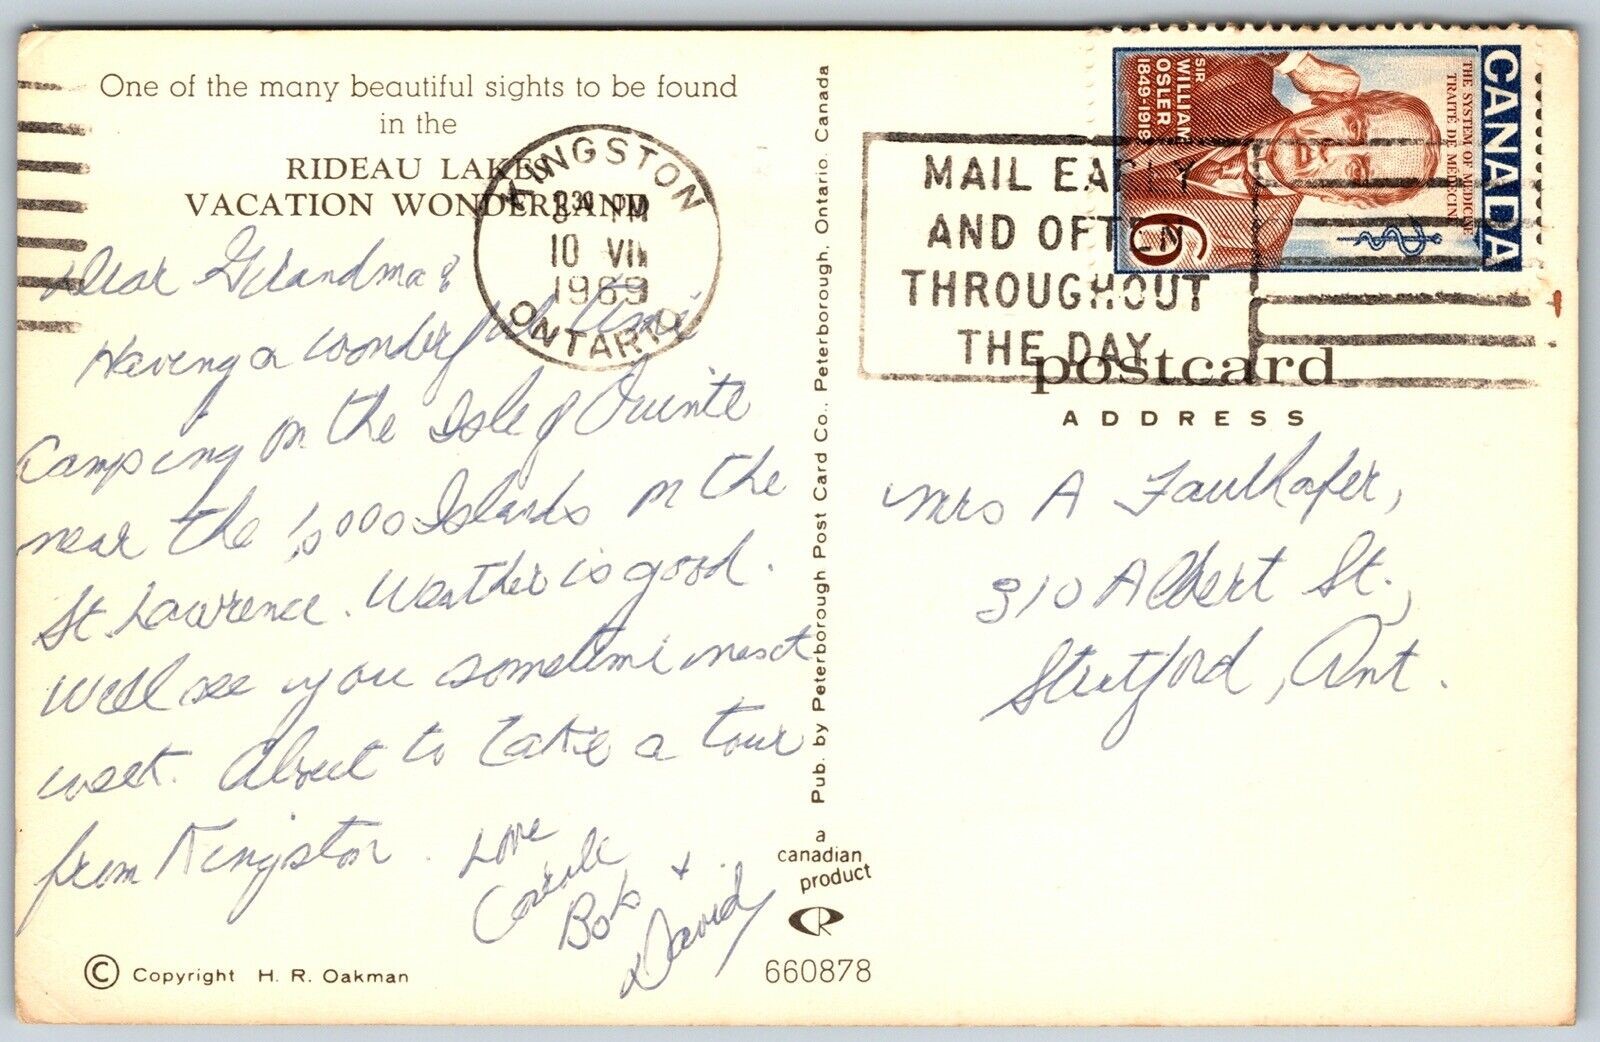 One of the many beautiful sights to be found
in the
RIDEAU LAKES
VACATION WONDERLAND
Dear Grandma:
Having a wonderful time
Camping on the Isle of Quinte
near the 1,000 Islands on the
St Lawrence. Weather is good.
We'll see you sometime next
week. About to take a tour
from Kingston.
Love
Carole
Bob +
David
© Copyright H. R. Oakman
KINGSTON
PM
10 VII
1969
ONTARIO
Pub. by Peterborough Post Card Co., Peterborough, Ontario, Canada
a
canadian
product
CR
660878
MAIL EARLY
AND OFTEN
THROUGHOUT
THE DAY
CANADA
THE SYSTEM OF MEDICINE
TRAITÉ DE MÉDECINE
SIR
WILLIAM
OSLER
1849-1919
6
postcard
ADDRESS
Mrs A Faulhafer,
310 Albert St.,
Stratford, Ont.